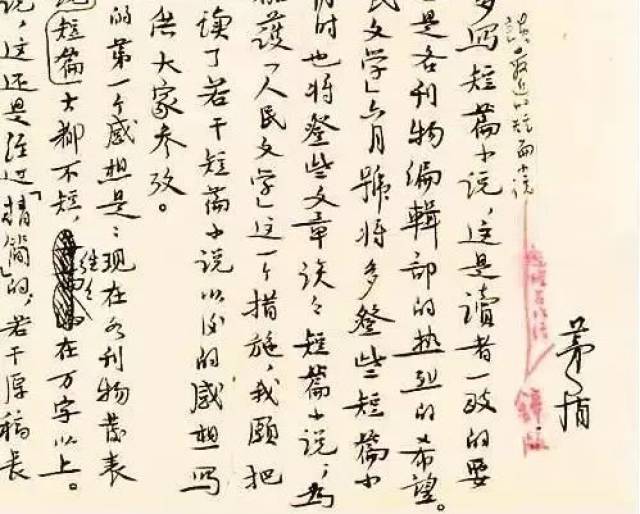 茅盾
谈最近的短篇小说
多写短篇小说，这是读者一致的要
是各刊物编辑部的热烈的希望。
民文学」六月号将多登些短篇小
时也将登些文章谈谈短篇小说，为
护「人民文学」这一个措施，我愿把
读了若干短篇小说以后的感想写
供大家参考。
的第一个感想是：现在各刊物发表
短篇，大都不短，往往在万字以上。
说，这还是经过「精简」的，若干原稿长